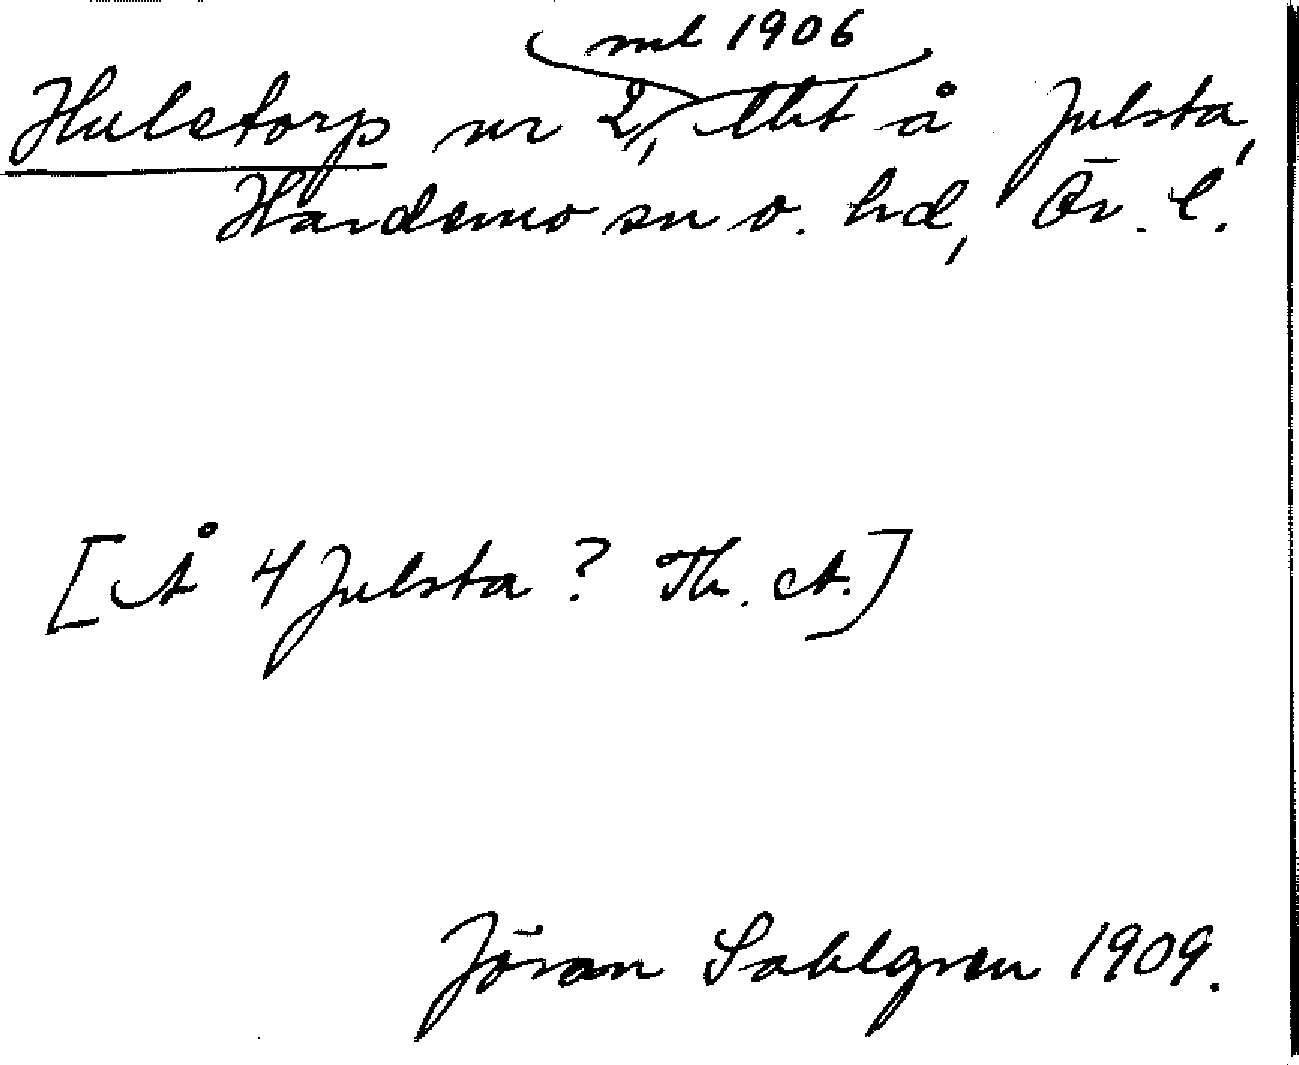 ml 1906
Huletorp nr 2, lht å Julsta,
Hardemo sn o. hd, Ör. l.
[Å 4 Julsta? Th. A.]
Jöran Sahlgren 1909.